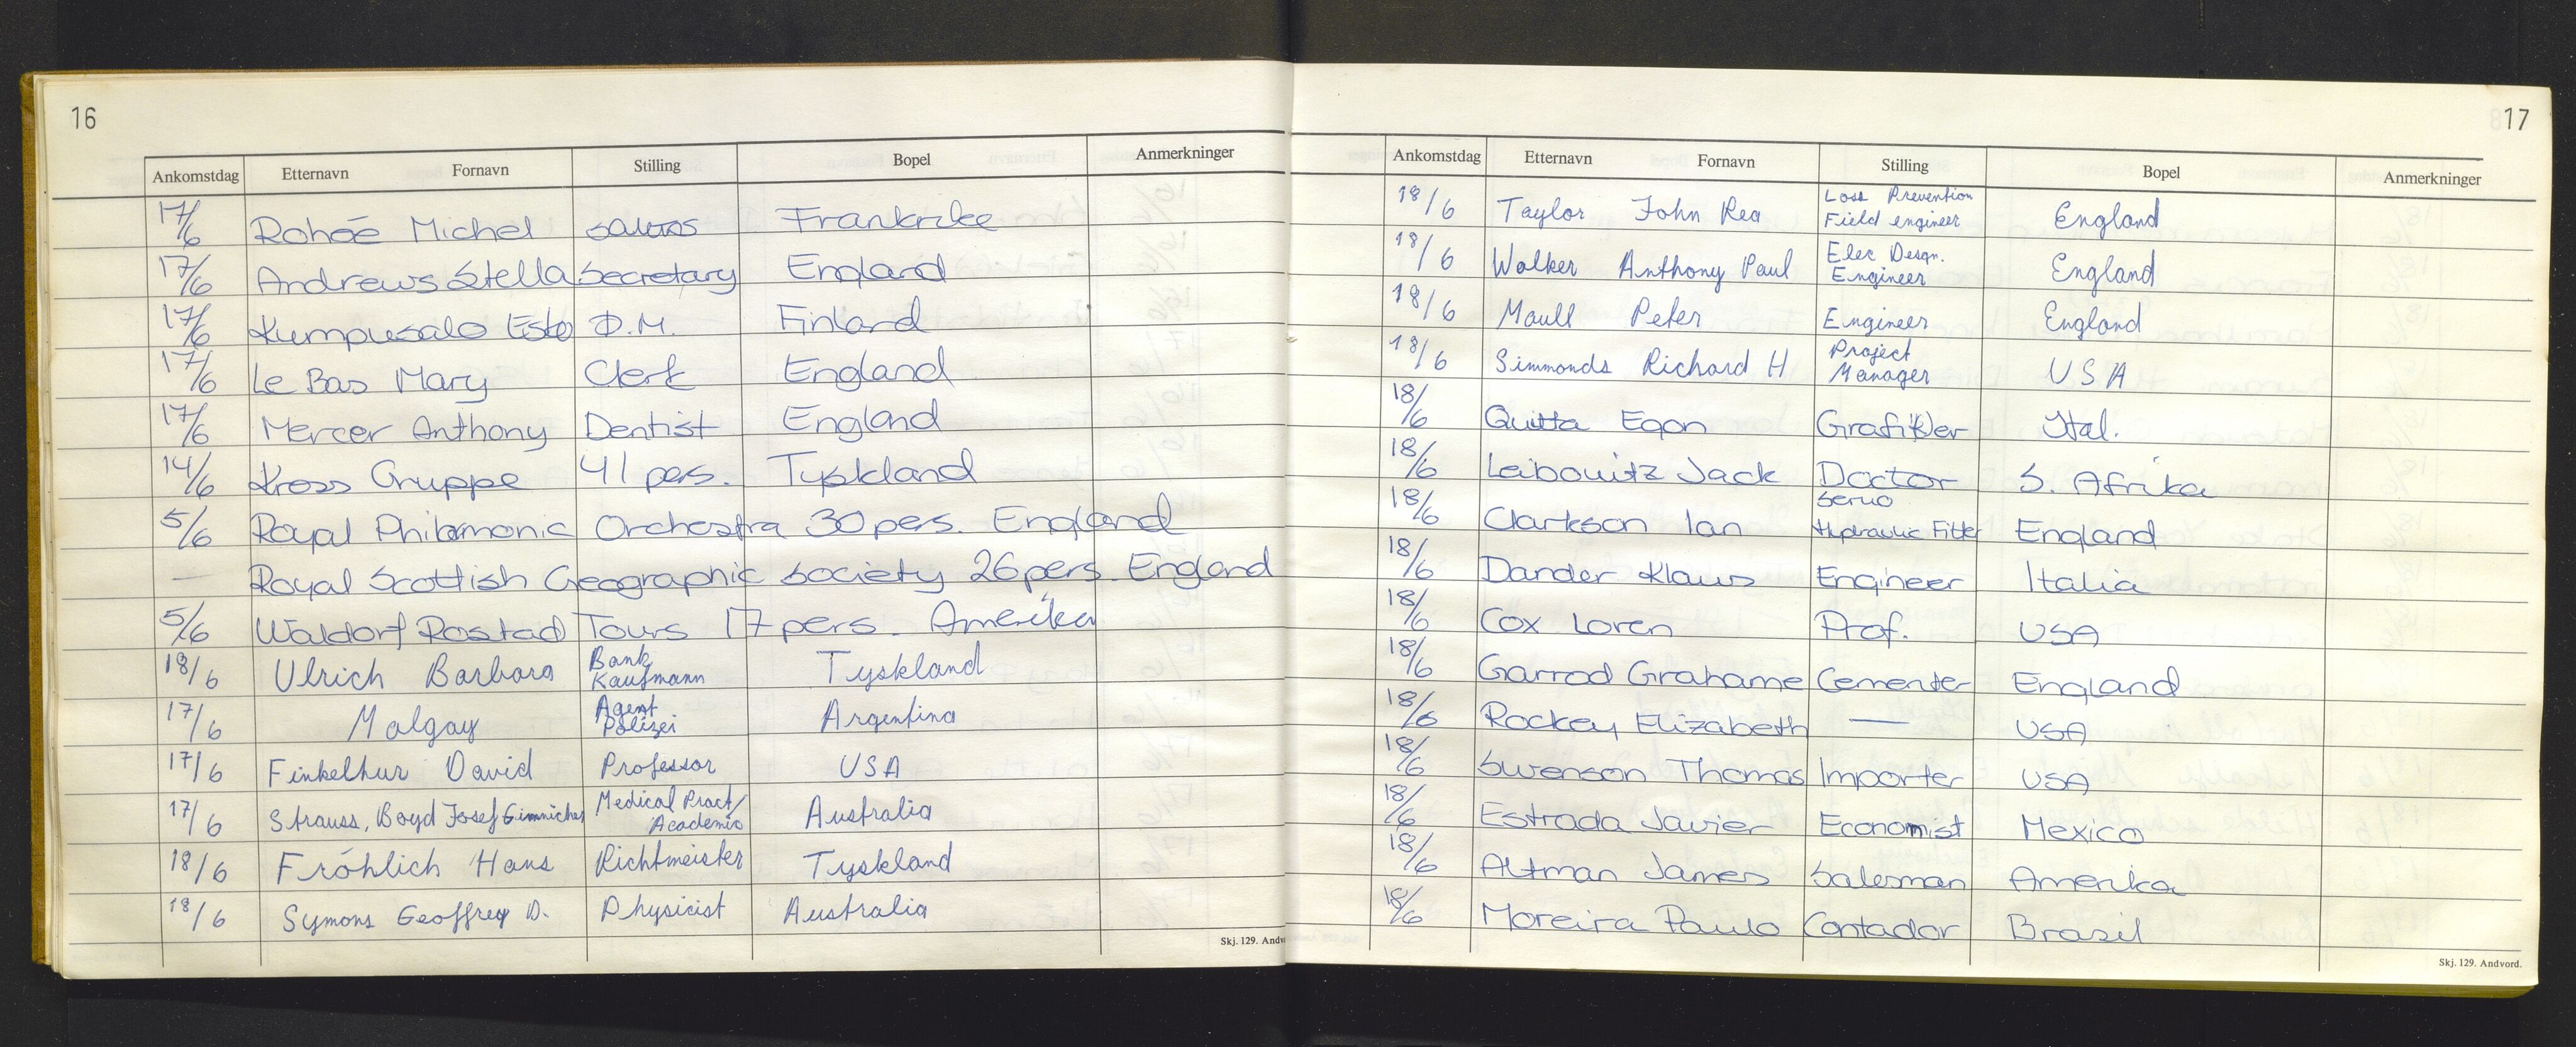 16
Ankomstdag Etternavn Fornavn Stilling Bopel Anmerkninger
17/6 Rohée Michel Frankrike
17/6 Andrews Stella Secretary England
17/6 Kumpusalo Esko D.M. Finland
17/6 Le Bas Mary Clerk England
17/6 Mercer Anthony Dentist England
14/6 Kross Gruppe 41 pers. Tyskland
5/6 Royal Philarmonic Orchestra 30 pers. England
— Royal Scottish Geographic Society 26 pers. England
5/6 Waldorf Rostad Tours 17 pers. Amerika
18/6 Ulrich Barbara Bank Kaufmann Tyskland
17/6 Malgay Agent Polizei Argentina
17/6 Finkelhur David Professor USA
17/6 Strauss, Boyd Josef Gimnicher Medical Pract/ Academic Australia
18/6 Fröhlich Hans Richtmeister Tyskland
18/6 Symons Geoffrey D. Physicist Australia
Skj. 129. Andv
17
Ankomstdag Etternavn Fornavn Stilling Bopel Anmerkninger
18/6 Taylor John Rea Loss Prevention Field engineer England
18/6 Walker Anthony Paul Elec Desgn. Engineer England
18/6 Maull Peter Engineer England
18/6 Simmonds Richard H Project Manager USA
18/6 Quitta Egon Grafiker Ital.
18/6 Leibowitz Jack Doctor S. Afrika
18/6 Clarkson Ian Servo Hydraulic Fitter England
18/6 Dander Klaus Engineer Italia
18/6 Cox Loren Prof. USA
18/6 Garrod Grahame Cementer England
18/6 Rockey Elizabeth — USA
18/6 Swenson Thomas Importer USA
18/6 Estrada Javier Economist Mexico
18/6 Altman James Salesman Amerika
18/6 Moreira Paulo Contador Brasil
Skj. 129. Andvord.